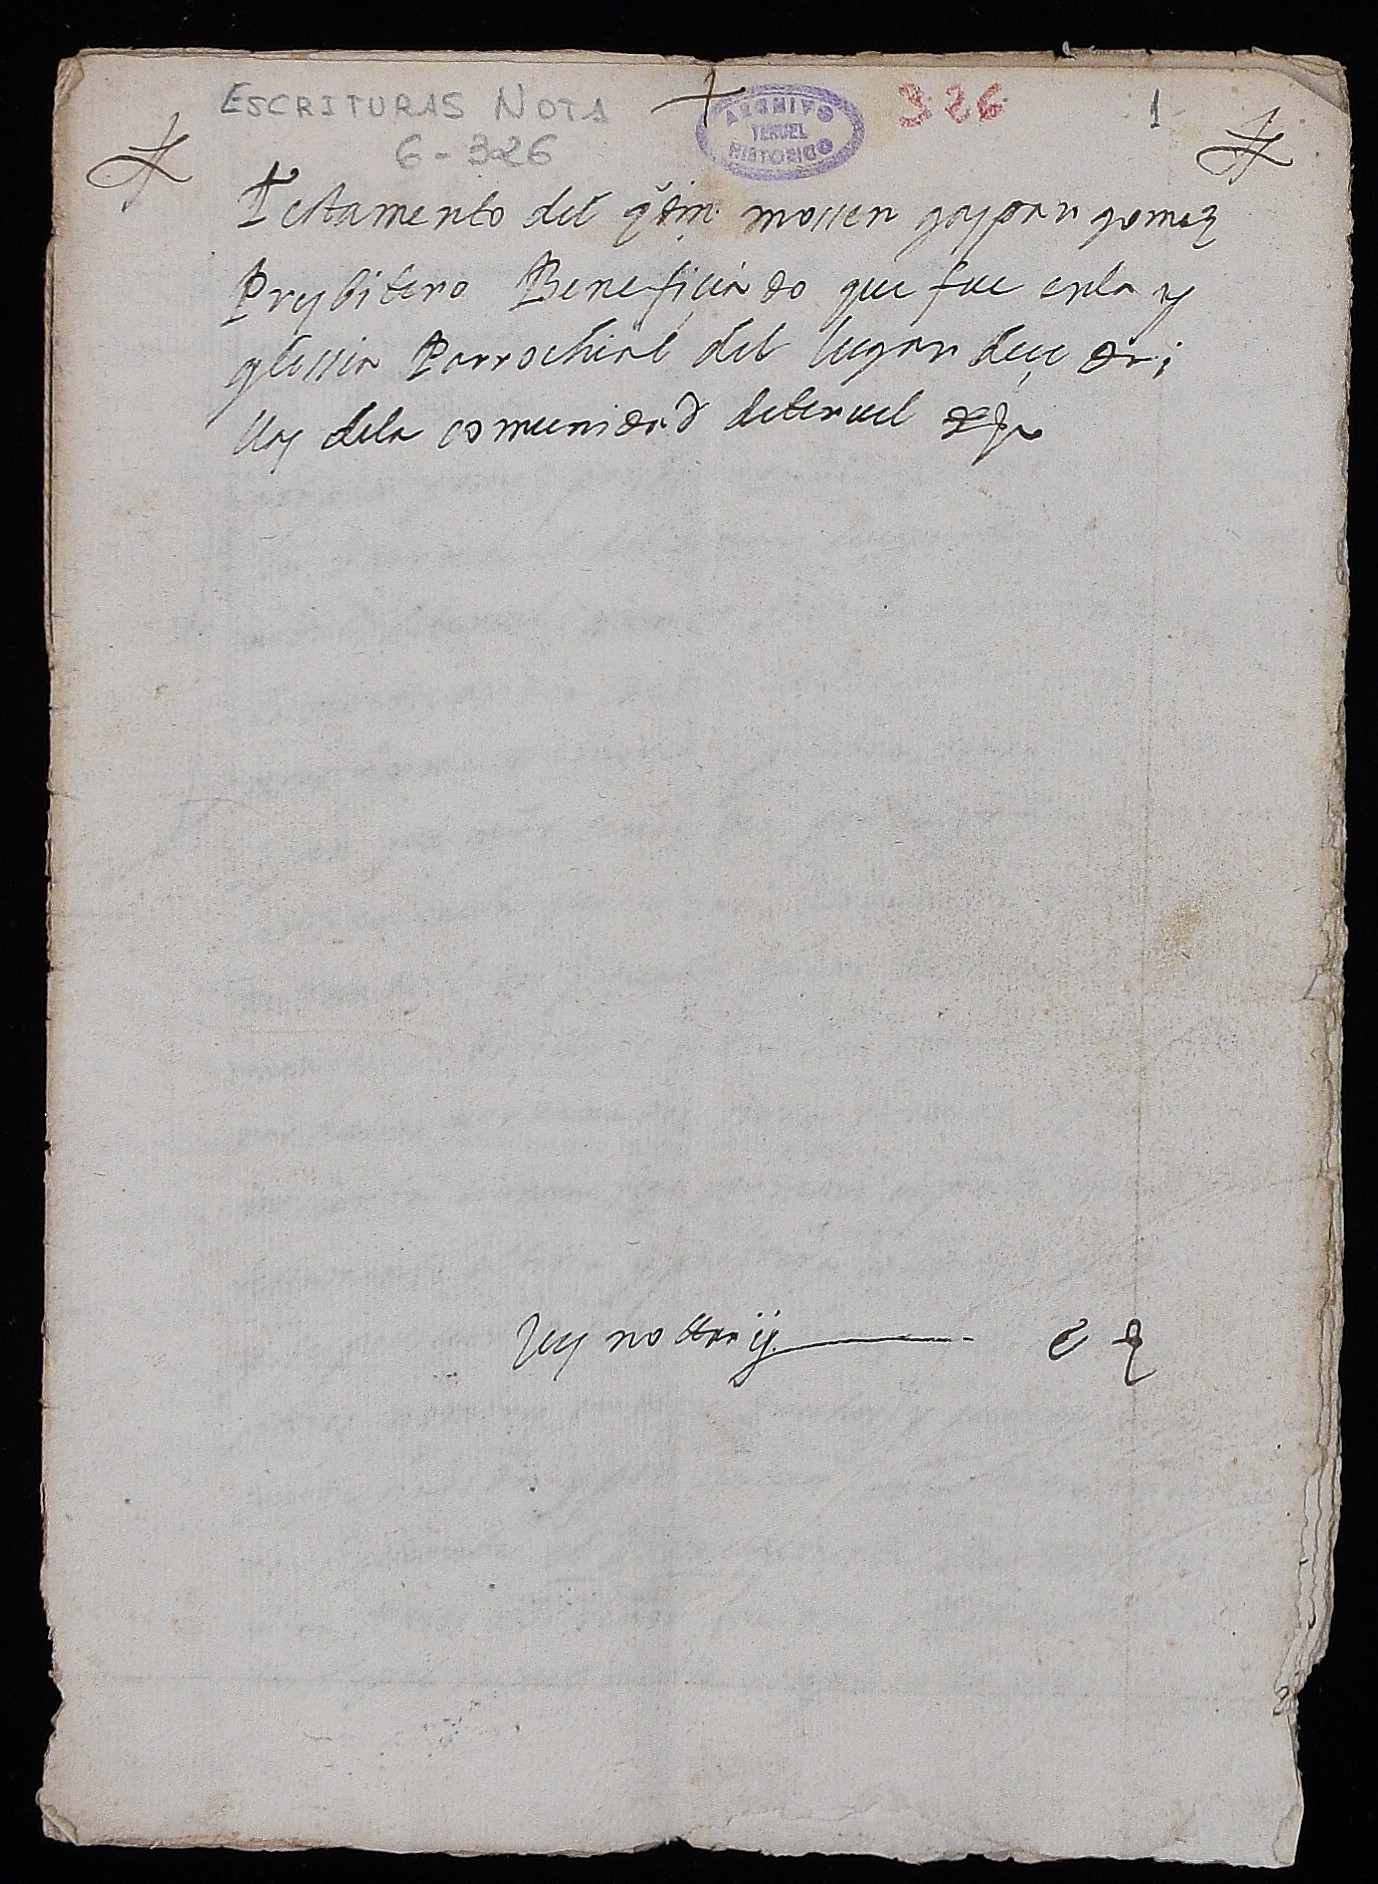 ESCRITURAS NOTA
6-326
ARCHIVO
TERUEL
HISTORICO
326
1
Testamento del qdm mossen gaspar gomez
Presbitero Beneficiado que fue enla y
glessia Parrochial del lugar de çedri
llas dela comunidad deteruel